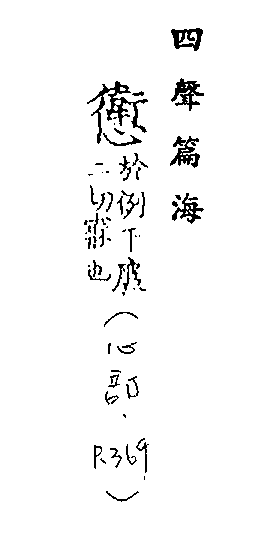 四聲篇海
於例下
二切也
(心部.P.369)